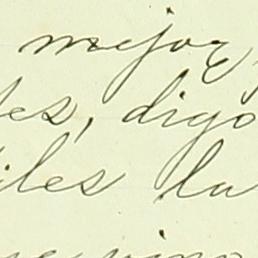 mejor,
es, digo
iles la